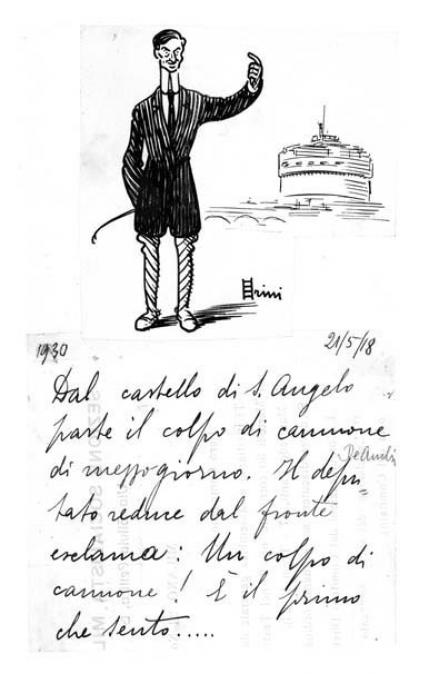 Girini
1930
21/5/18
Dal castello di S. Angelo
parte il colpo di cannone
di mezzogiorno. Il depu=
De Andreis
tato reduce dal fronte
esclama: Un colpo di
cannone! È il primo
che sento.....